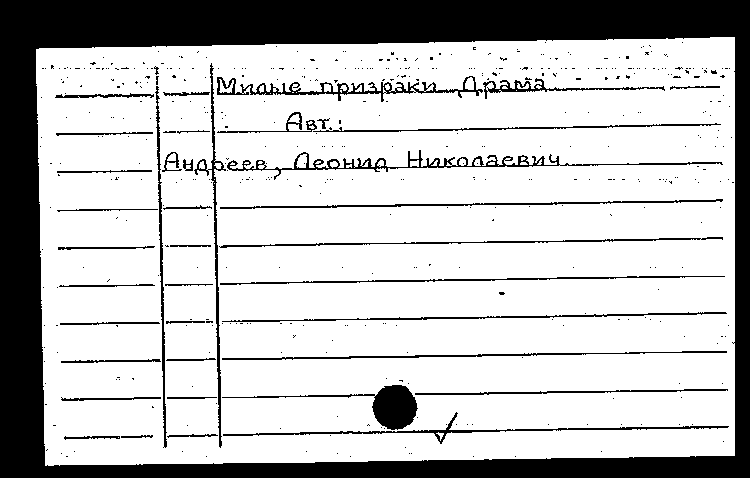 Милые призраки Драма
Авт.:
Андреев, Леонид Николаевич.